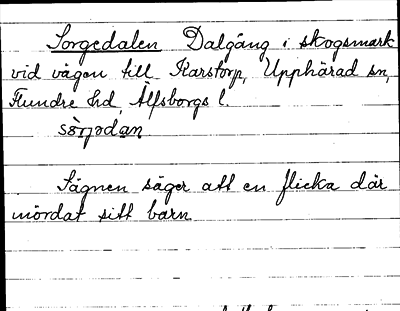 Sorgedalen Dalgång i skogsmark
vid vägen till Karstorp, Upphärad sn,
Flundre hd, Älfsborgs l.
Sägnen säger att en flicka där
mördat sitt barn